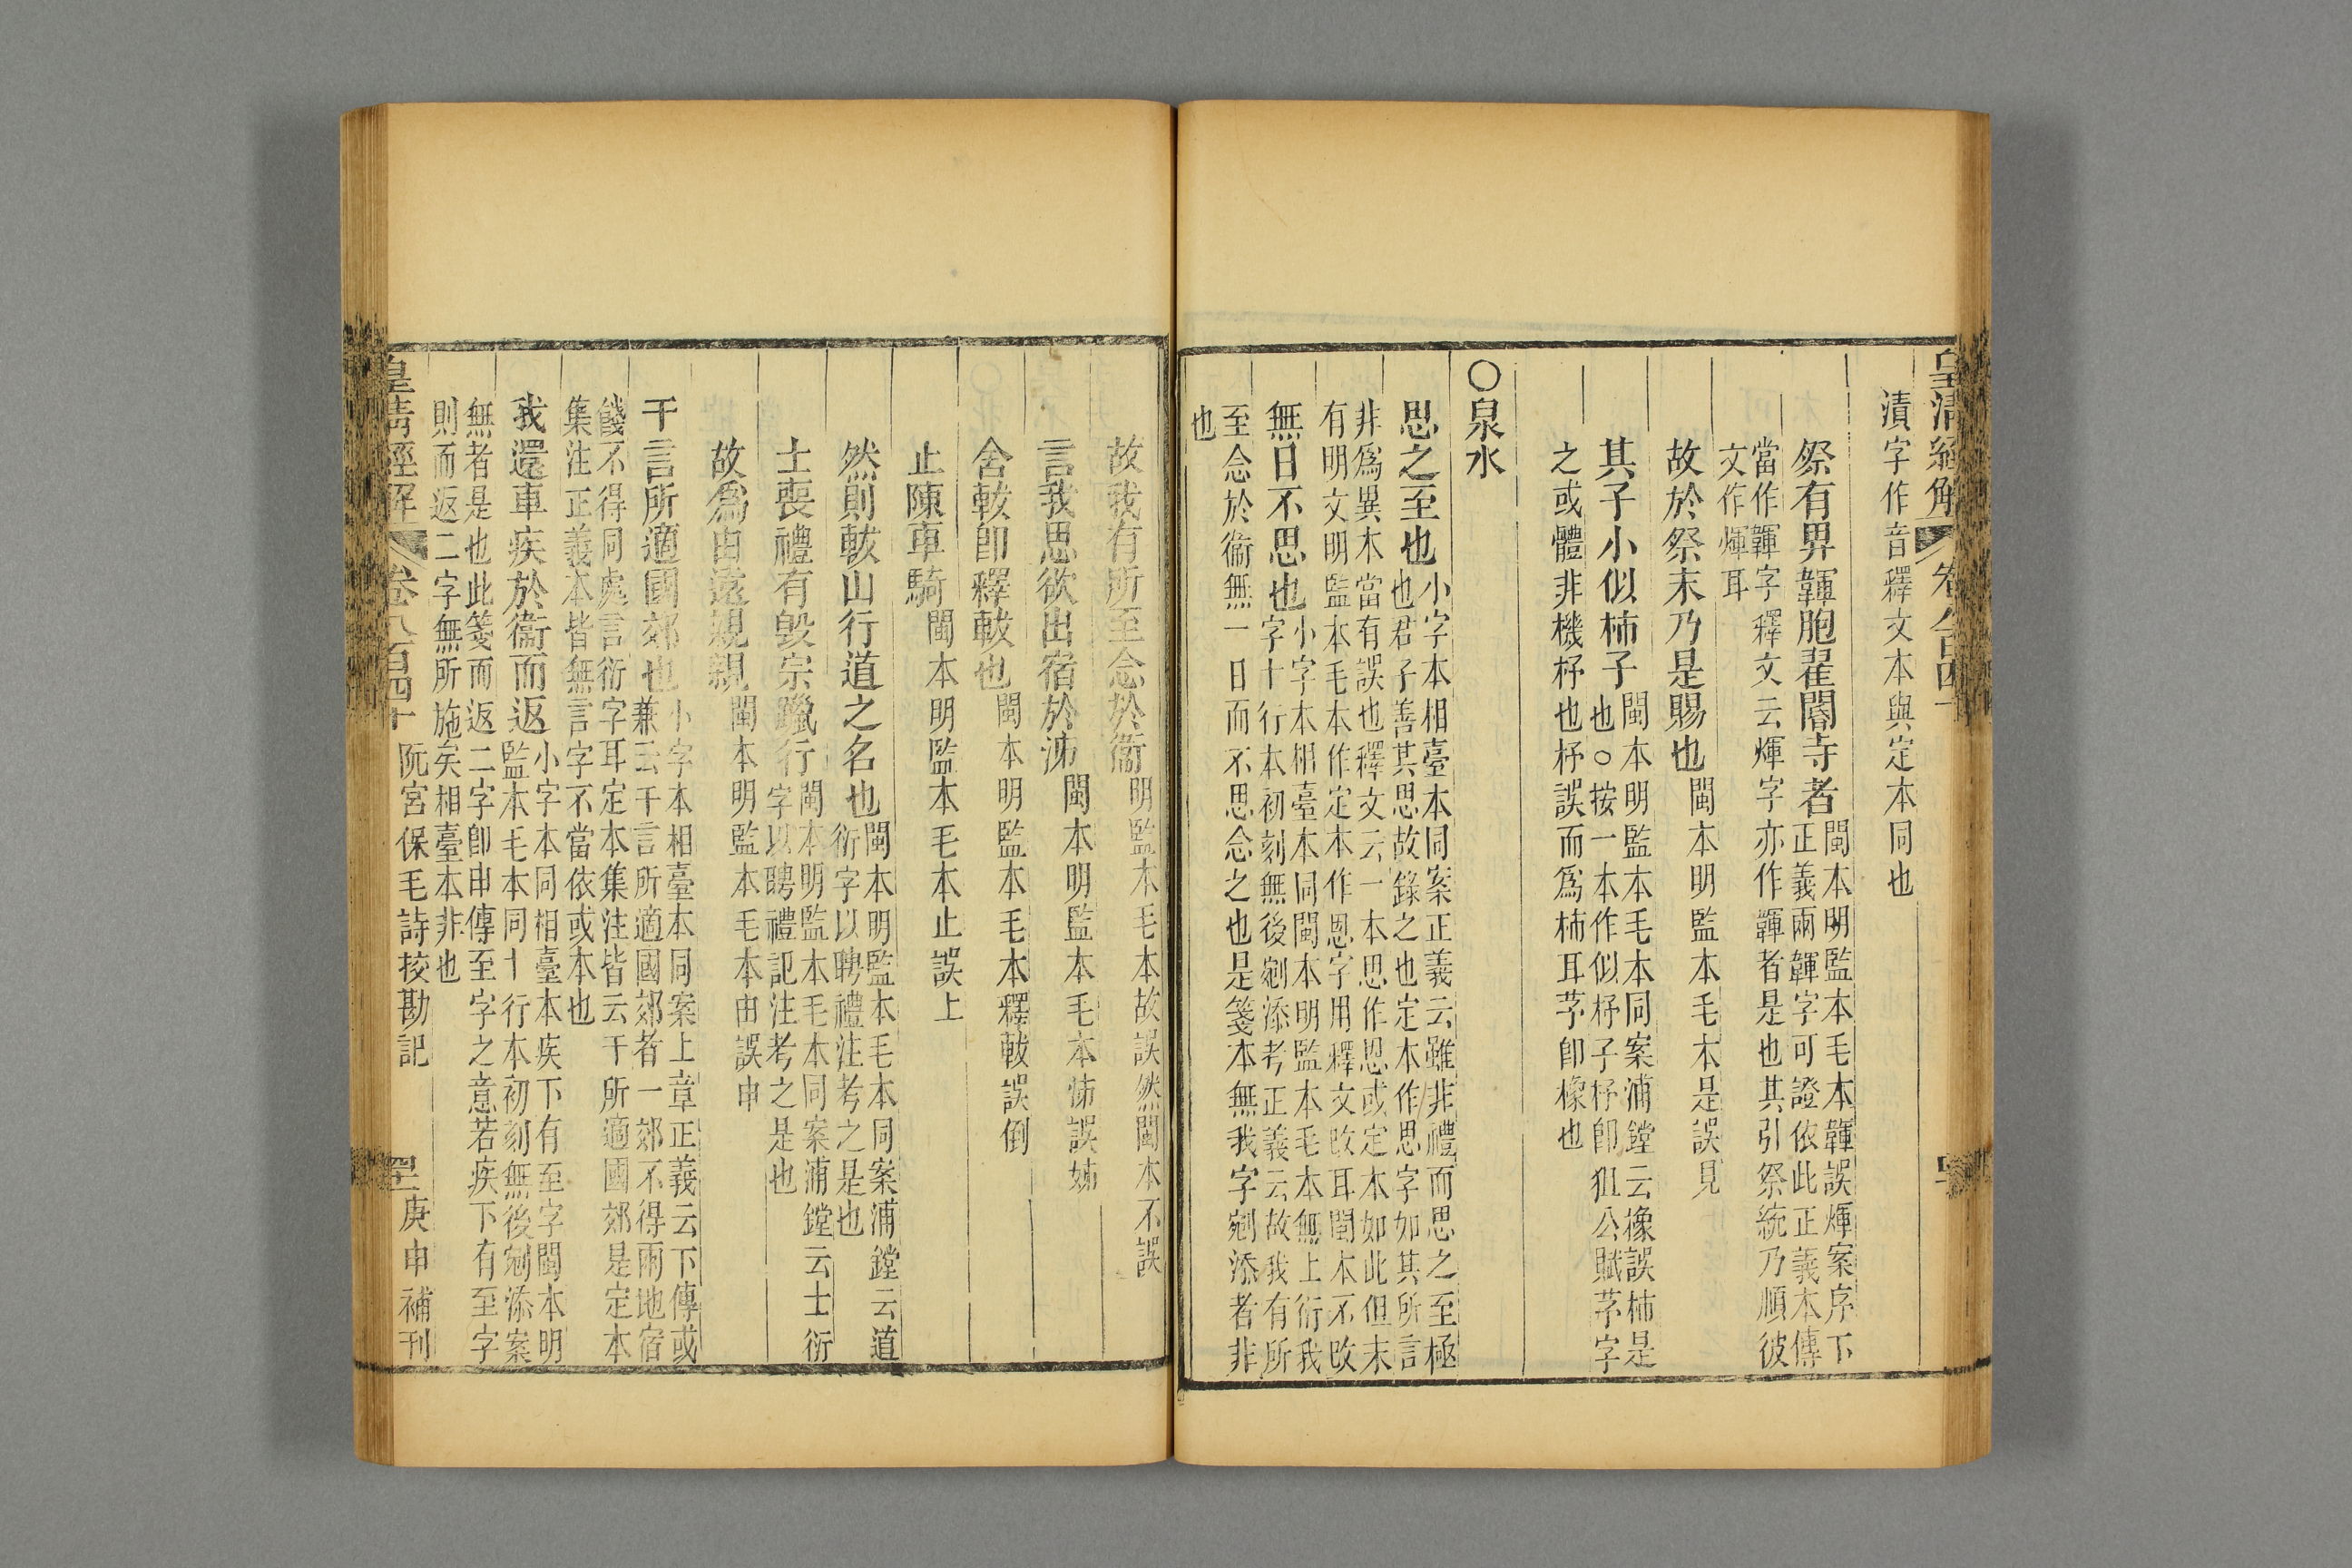 皇清經解
卷八百四十
漬字作音釋文本與定本同也
祭有畀韗胞翟閽寺者
閩本明監本毛本韗誤煇案序下
正義兩韗字可證依此正義本傳
當作韗字釋文云煇字亦作韗者是也其引祭統乃順彼
文作煇耳
故於祭末乃是賜也
閩本明監本毛本是誤見
其子小似柿子
閩本明監本毛本同案浦鏜云橡誤柿是
也○按一本作似杼子杼卽狙公賦芧字
之或體非機杼也杼誤而爲柿耳芧卽橡也
○泉水
思之至也
小字本相臺本同案正義云雖非禮而思之至極
也君子善其思故錄之也定本作思字如其所言
非爲異本當有誤也釋文云一本思作恩或定本如此但未
有明文明監本毛本作定本作恩字用釋文改耳閩本不改
無日不思也
小字本相臺本同閩本明監本毛本無上衍我
字十行本初刻無後剜添考正義云故我有所
至念於衞無一日而不思念之也是箋本無我字剜添者非
也
故我有所至念於衞
明監本毛本故誤然閩本不誤
言我思欲出宿於泲
閩本明監本毛本泲誤姊
舍軷卽釋軷也
閩本明監本毛本釋軷誤倒
止陳車騎
閩本明監本毛本止誤上
然則軷山行道之名也
閩本明監本毛本同案浦鏜云道
衍字以聘禮注考之是也
士喪禮有毁宗躐行
閩本明監本毛本同案浦鏜云士衍
字以聘禮記注考之是也
故爲由遠親親
閩本明監本毛本由誤申
干言所適國郊也
小字本相臺本同案上章正義云下傳或
兼云干言所適國郊者一郊不得兩地宿
餞不得同處言衍字耳定本集注皆云干所適國郊是定本
集注正義本皆無言字不當依或本也
我還車疾於衞而返
小字本同相臺本疾下有至字閩本明
監本毛本同十行本初刻無後剜添案
無者是也此箋而返二字卽申傳至字之意若疾下有至字
則而返二字無所施矣相臺本非也
皇清經解
卷八百四十
阮宮保毛詩挍勘記
庚申補刊